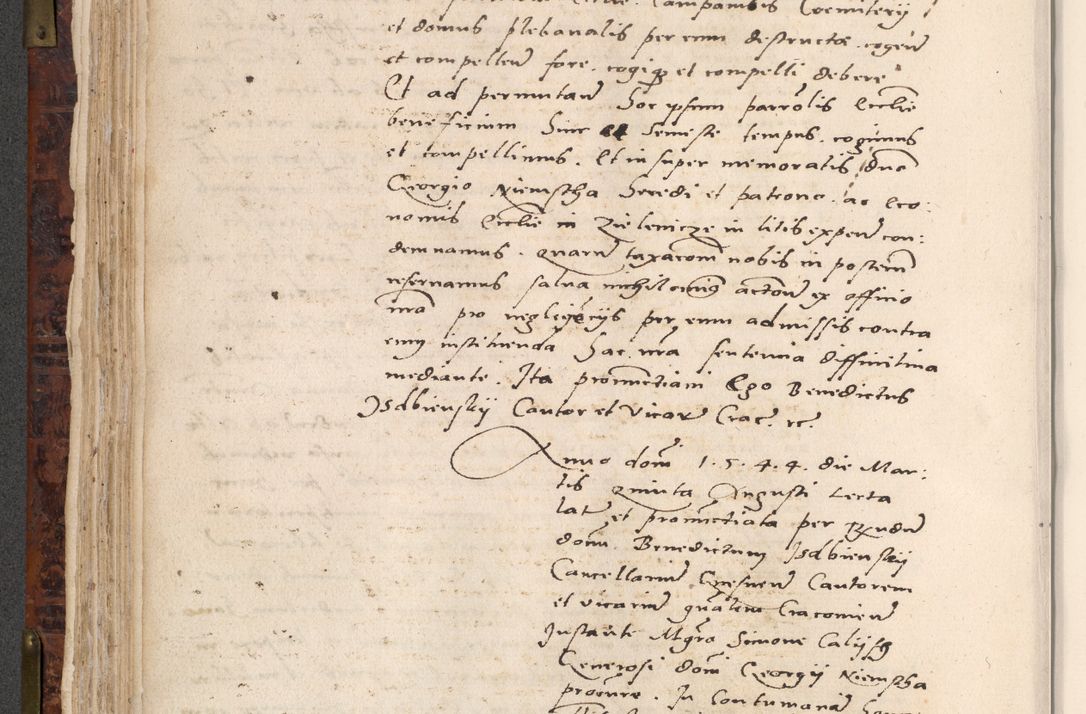 Ecclie. Campanilis Coemiterij
et domus plebanalis per eum destructæ. cogeñ
et compelleñ fore. cogiq3 et compelli debere
Et ad permutanđ Hoc ipsum parrõlis Ecclie
beneficium hinc ad Semestre tempus. cogimus
et compellimus. Et insuper memoratis dño
Georgio Niemstha heredi et patrono. ac Eco:
nomis Ecclie in Zielenicze in litis expeñ con:
demnamus. quarum taxacom̃ nobis in posterum
reservamus salva nihilominus actione ex officio
nr̃o pro negligẽcijs per eum admissis contra
eum instituenda hac nr̃a sententia diffinitiva
mediante. Ita pronunctiavi Ego Benedictus
Isdbienskij Cantor et Vicar Crac. rc.
Anno domĩ 1.5.4.4. die Mar:
tis quinta Augusti Lecta
lata et pronunctiata per Rndum
domĩ. Benedictum Isdbienskij
Cancellarium Gnesneñ Cantorem
et vicarium gñalem Cracovieñ
Instante Mgro Simone Calijsch
Generosi domĩ Georgij Niemstha
procure. In Contumaciam